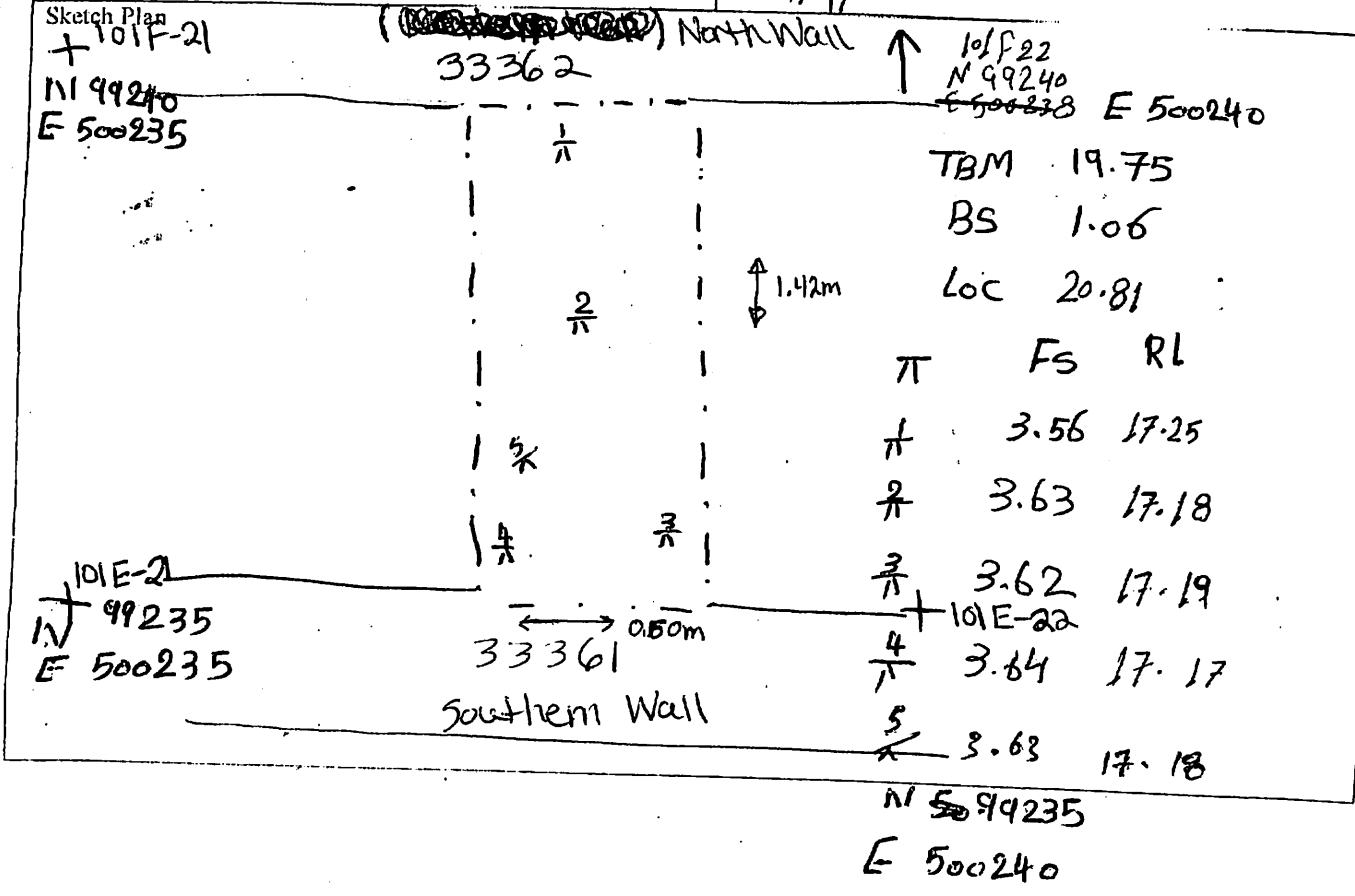 Sketch Plan
101F-21
N 99240
E 500235
North Wall
33362
101F22
N 99240
E 500238 E 500240
TBM 19.75
BS 1.06
LOC 20.81
1.42m
π FS RL
1/π 3.56 17.25
2/π 3.63 17.18
3/π 3.62 17.19
4/π 3.64 17.17
5/π 3.63 17.18
1/π
2/π
5/π
4/π
3/π
101E-21
N 99235
E 500235
101E-22
0.50m
33361
Southern Wall
N 99235
E 500240